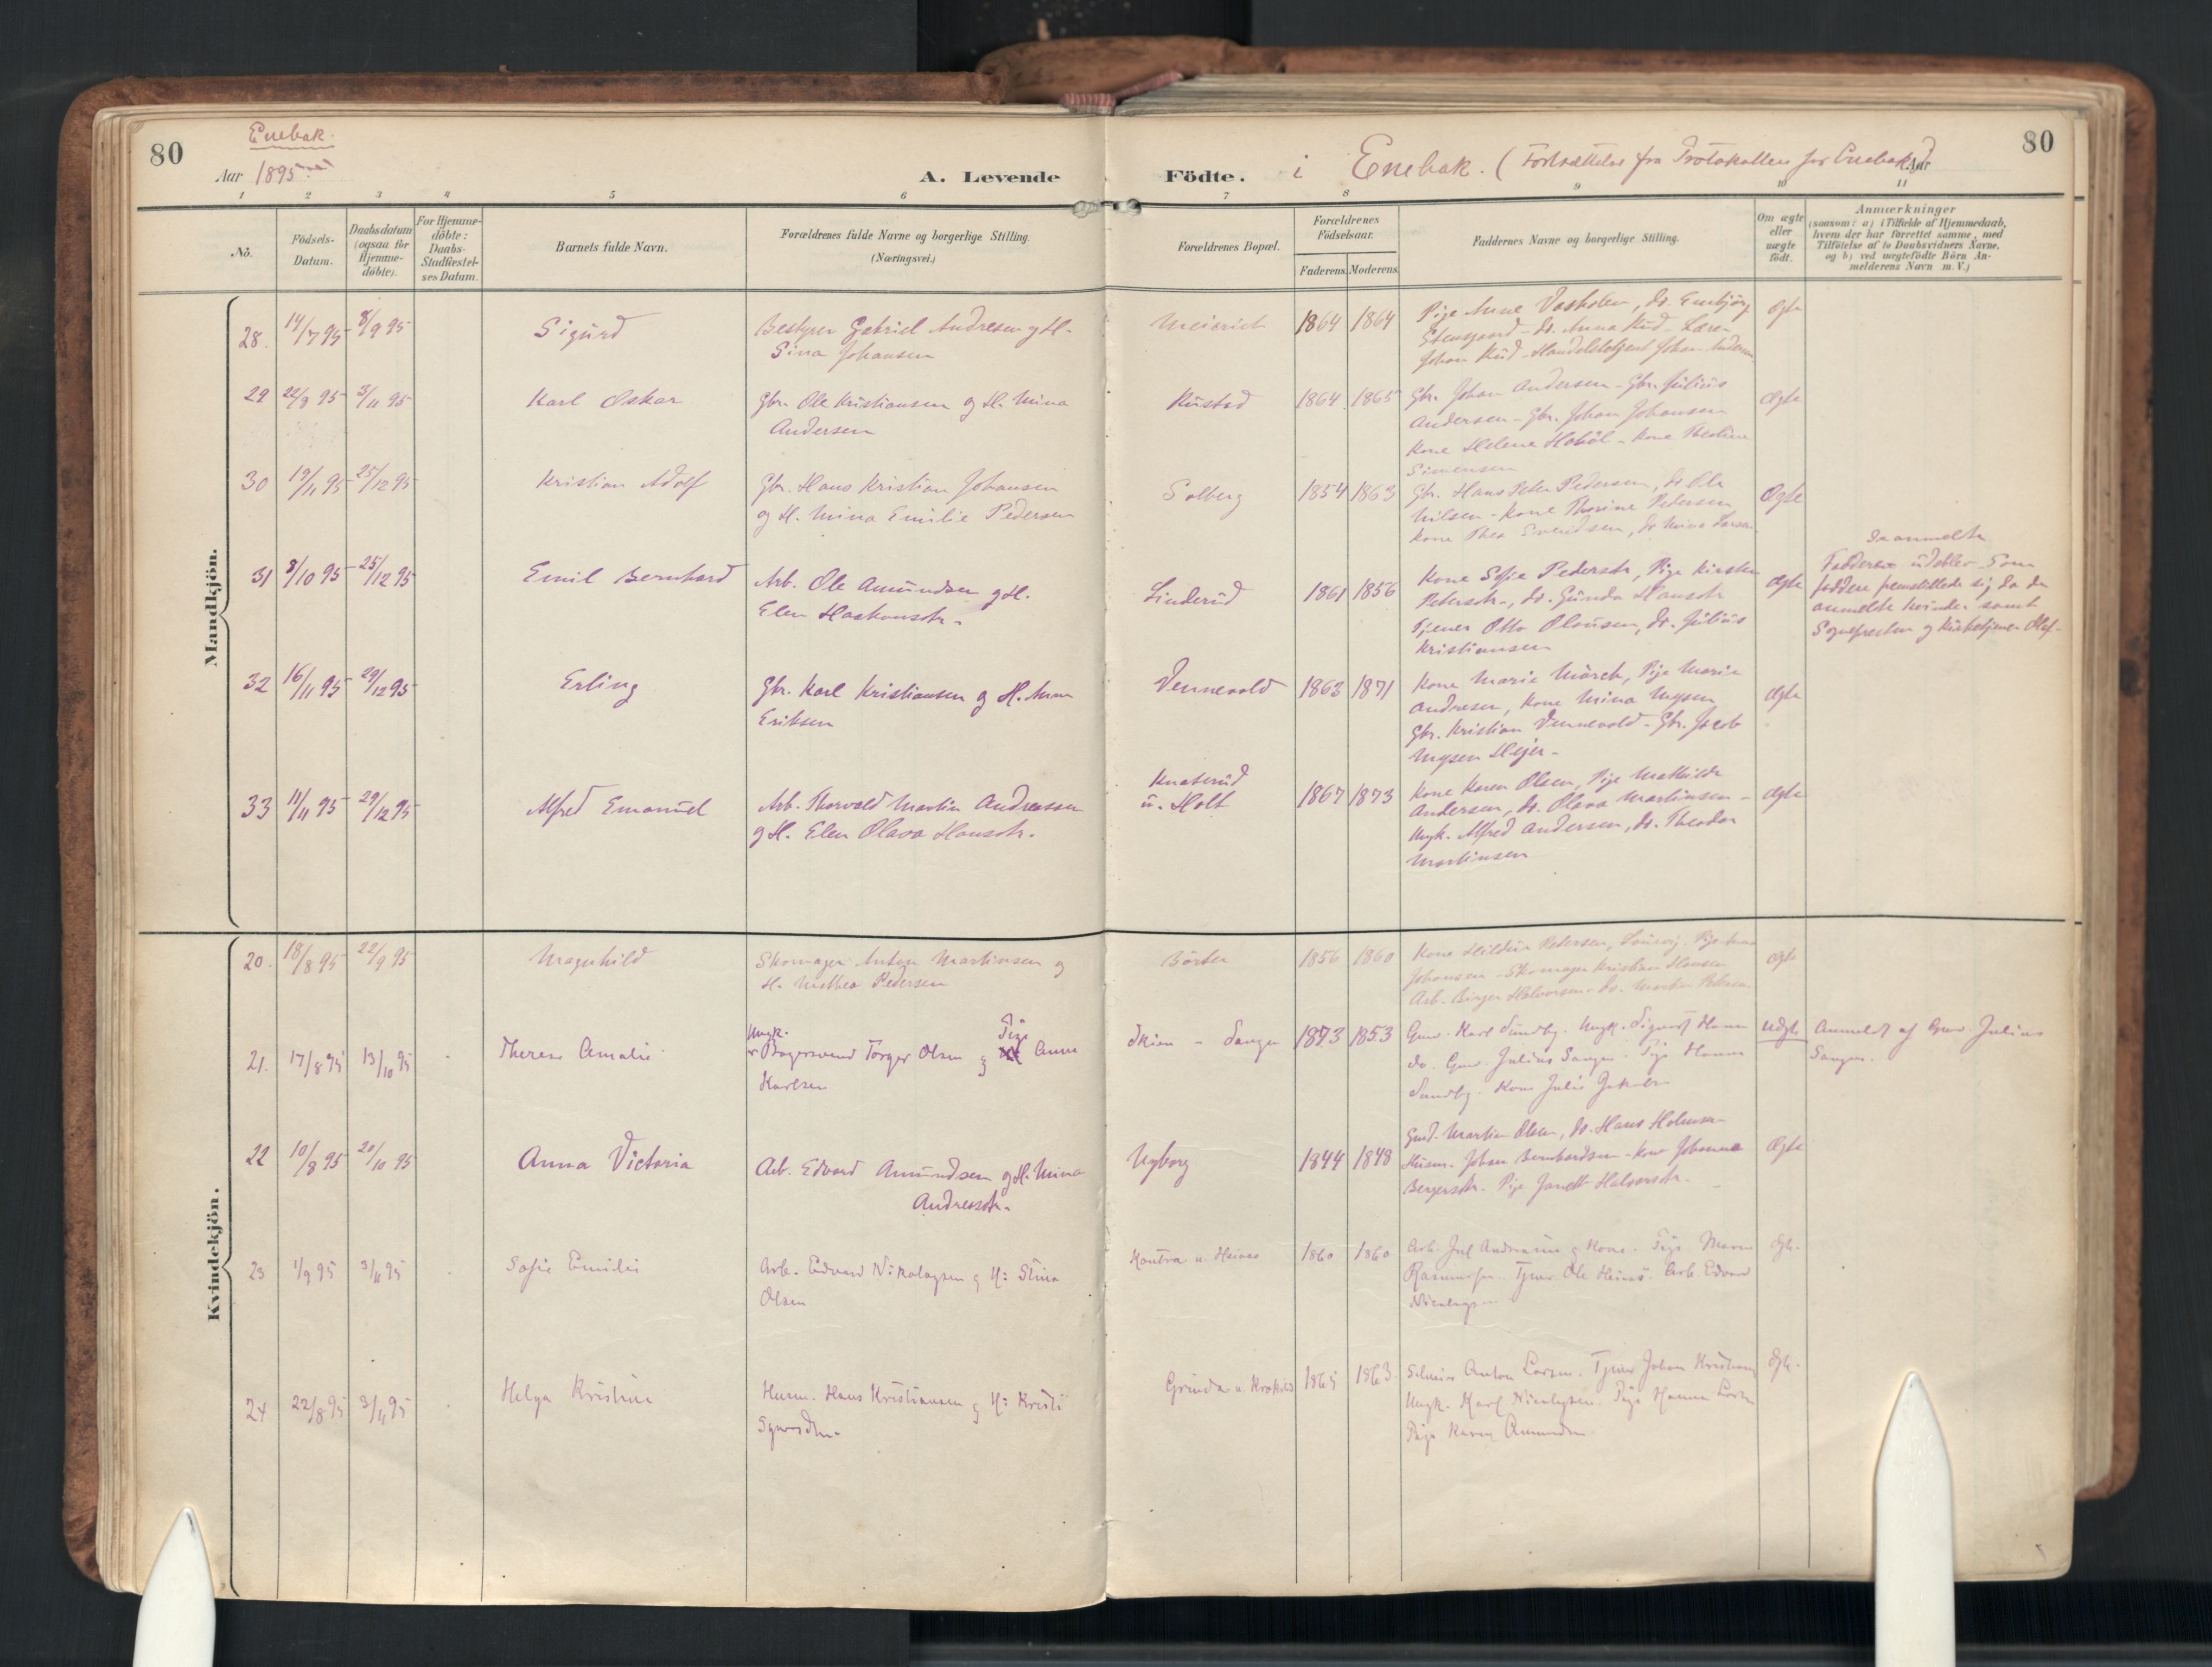 80
Enebak.
Aar 1895
A. Levende
Födte. i Enebak. (Fortsættelse fra Protokollen for Enebak)
Aar
80
1 2 3 4 5 6 7 8 9 10 11
No.
Födsels-
Datum.
Daabsdatum
(ogsaa for
Hjemme-
döbte).
For Hjemme-
döbte:
Daabs-
Stadfæstel-
ses Datum.
Barnets fulde Navn.
Forældrenes fulde Navne og borgerlige Stilling.
(Næringsvei.)
Forældrenes Bopæl.
Forældrenes
Födselsaar.
Faderens. Moderens.
Faddernes Navne og borgerlige Stilling.
Om ægte
eller
uægte
födt.
Anmærkninger
(saasom: a) i Tilfælde af Hjemmedaab,
hvem der har forrettet samme, med
Tilföielse af to Daabsvidners Navne,
og b) ved uægtefödte Börn An-
melderens Navn m. V.)
Mandkjön.
28. 14/7 95 8/9 95 Sigurd
Bestyrer Gabriel Andresen og H.
Sina Johansen
Meieriet 1864 1864
Pige Anne Vasholen, do.
do. Anna Rud
Johan Rud - Handelsbetjent Johan Andersen
Ægte
29 22/8 95 3/11 95 Karl Oskar
Gbr. Ole Kristiansen og H. Mina
Andersen
Rustad 1864 1865
Gbr. Johan Andersen - Gbr. Julius
Andersen - Gbr. Johan Johansen
Kone Helene Hobøl - Kone
Simensen
Ægte
30 19/11 95 25/12 95 Kristian Adolf
Gbr. Hans Kristian Johansen
og H. Mina Emilie Pedersen
Solberg 1854 1863
Gbr. Hans Peter Pedersen, do. Ole
Nilsen - Kone Thorine Pedersen
Kone Thea Svendsen, do. Mina Larsen
Ægte
31 8/10 95 25/12 95 Emil Bernhard
Arb. Ole Amundsen og H.
Elen Haakonsdtr.
Linderud 1861 1856
Kone Sofie Pedersdtr, Pige Kirsten
Petersdtr., do. Gunda Hansdtr
Tjener Otto Olausen, do. Julius
Kristiansen
Ægte
De anmeldte
Faddere udeblev. Som
faddere fremstillede sig da de
anmeldte kvinder samt
Sognepresten og Kirketjener Olaf-
32 16/11 95 29/12 95 Erling
Gbr. Karl Kristiansen og H. Anna
Eriksen
Vennevold 1863 1871
Kone Marie Mörch, Pige Marie
Andresen, Kone Mina Mysen
Gbr. Kristian Vennevold - Gbr. Jacob
Mysen Heier -
Ægte
33 11/11 95 29/12 95 Alfred Emanuel
Arb. Thorvald Martin Andreassen
og H. Elen Olava Hansdtr.
Knaterud
u. Holt
1867 1873
Kone Karen Olsen, Pige Mathilde
Andersen, do. Olava Martinsen -
Ungk. Alfred Andersen, do. Theodor
Martinsen
Ægte
Kvindekjön.
20. 18/8 95 22/9 95 Magnhild
Skomager Anton Martinsen og
H. Mathea Pedersen
Börter 1856 1860
Kone Hildur Petersen,
Johansen - Skomager Kristian Hansen
Arb. Birger Halvorsen - do. Martin Petersen
Ægte
21. 17/8 95 13/10 95 Therese Amalie
Ungk. Pige
Bagersvend Törger Olsen og Anne
Karlsen
Skien - Sanger 1873 1853
Gmd. Karl Sundby. Ungk. Sigurd Hansen
do. Gmd. Julius Sanger. Pige Hanna
Sundby. Kone Julie Jakobsen
Uægte
Anmeldt af Gmd. Julius
Sanger.
22 10/8 95 20/10 95 Anna Victoria
Arb. Edvard Amundsen og H. Mina
Andreasdtr.
Nyborg 1844 1848
Gmd. Martin Olsen, do. Hans Holmsen
Husm. Johan Bernhardsen - Kone Johanna
Bergersdtr. Pige Janette Halvorsdtr.
Ægte
23 1/9 95 3/11 95 Sofie Emilie
Arb. Edvard Nikolaysen og H: Stina
Olsen
Kontra u. Heiaas 1860 1860
Arb. Jul Andreassen og Kone. Pige Maren
Rasmussen. Tjener Ole Heiaas. Arb. Edvard
Nicolaysen
Ægte.
24 22/8 95 3/11 95 Helga Kristine
Husm. Hans Kristiansen og H: Kristi
Syversdtr.
Grinda u. 1865 1863.
Anton Larsen. Tjener Johan Kristiansen
Ungk. Karl Nicolaysen. Pige Hanna Larsen
Pige Karen Amundsen
Ægte.